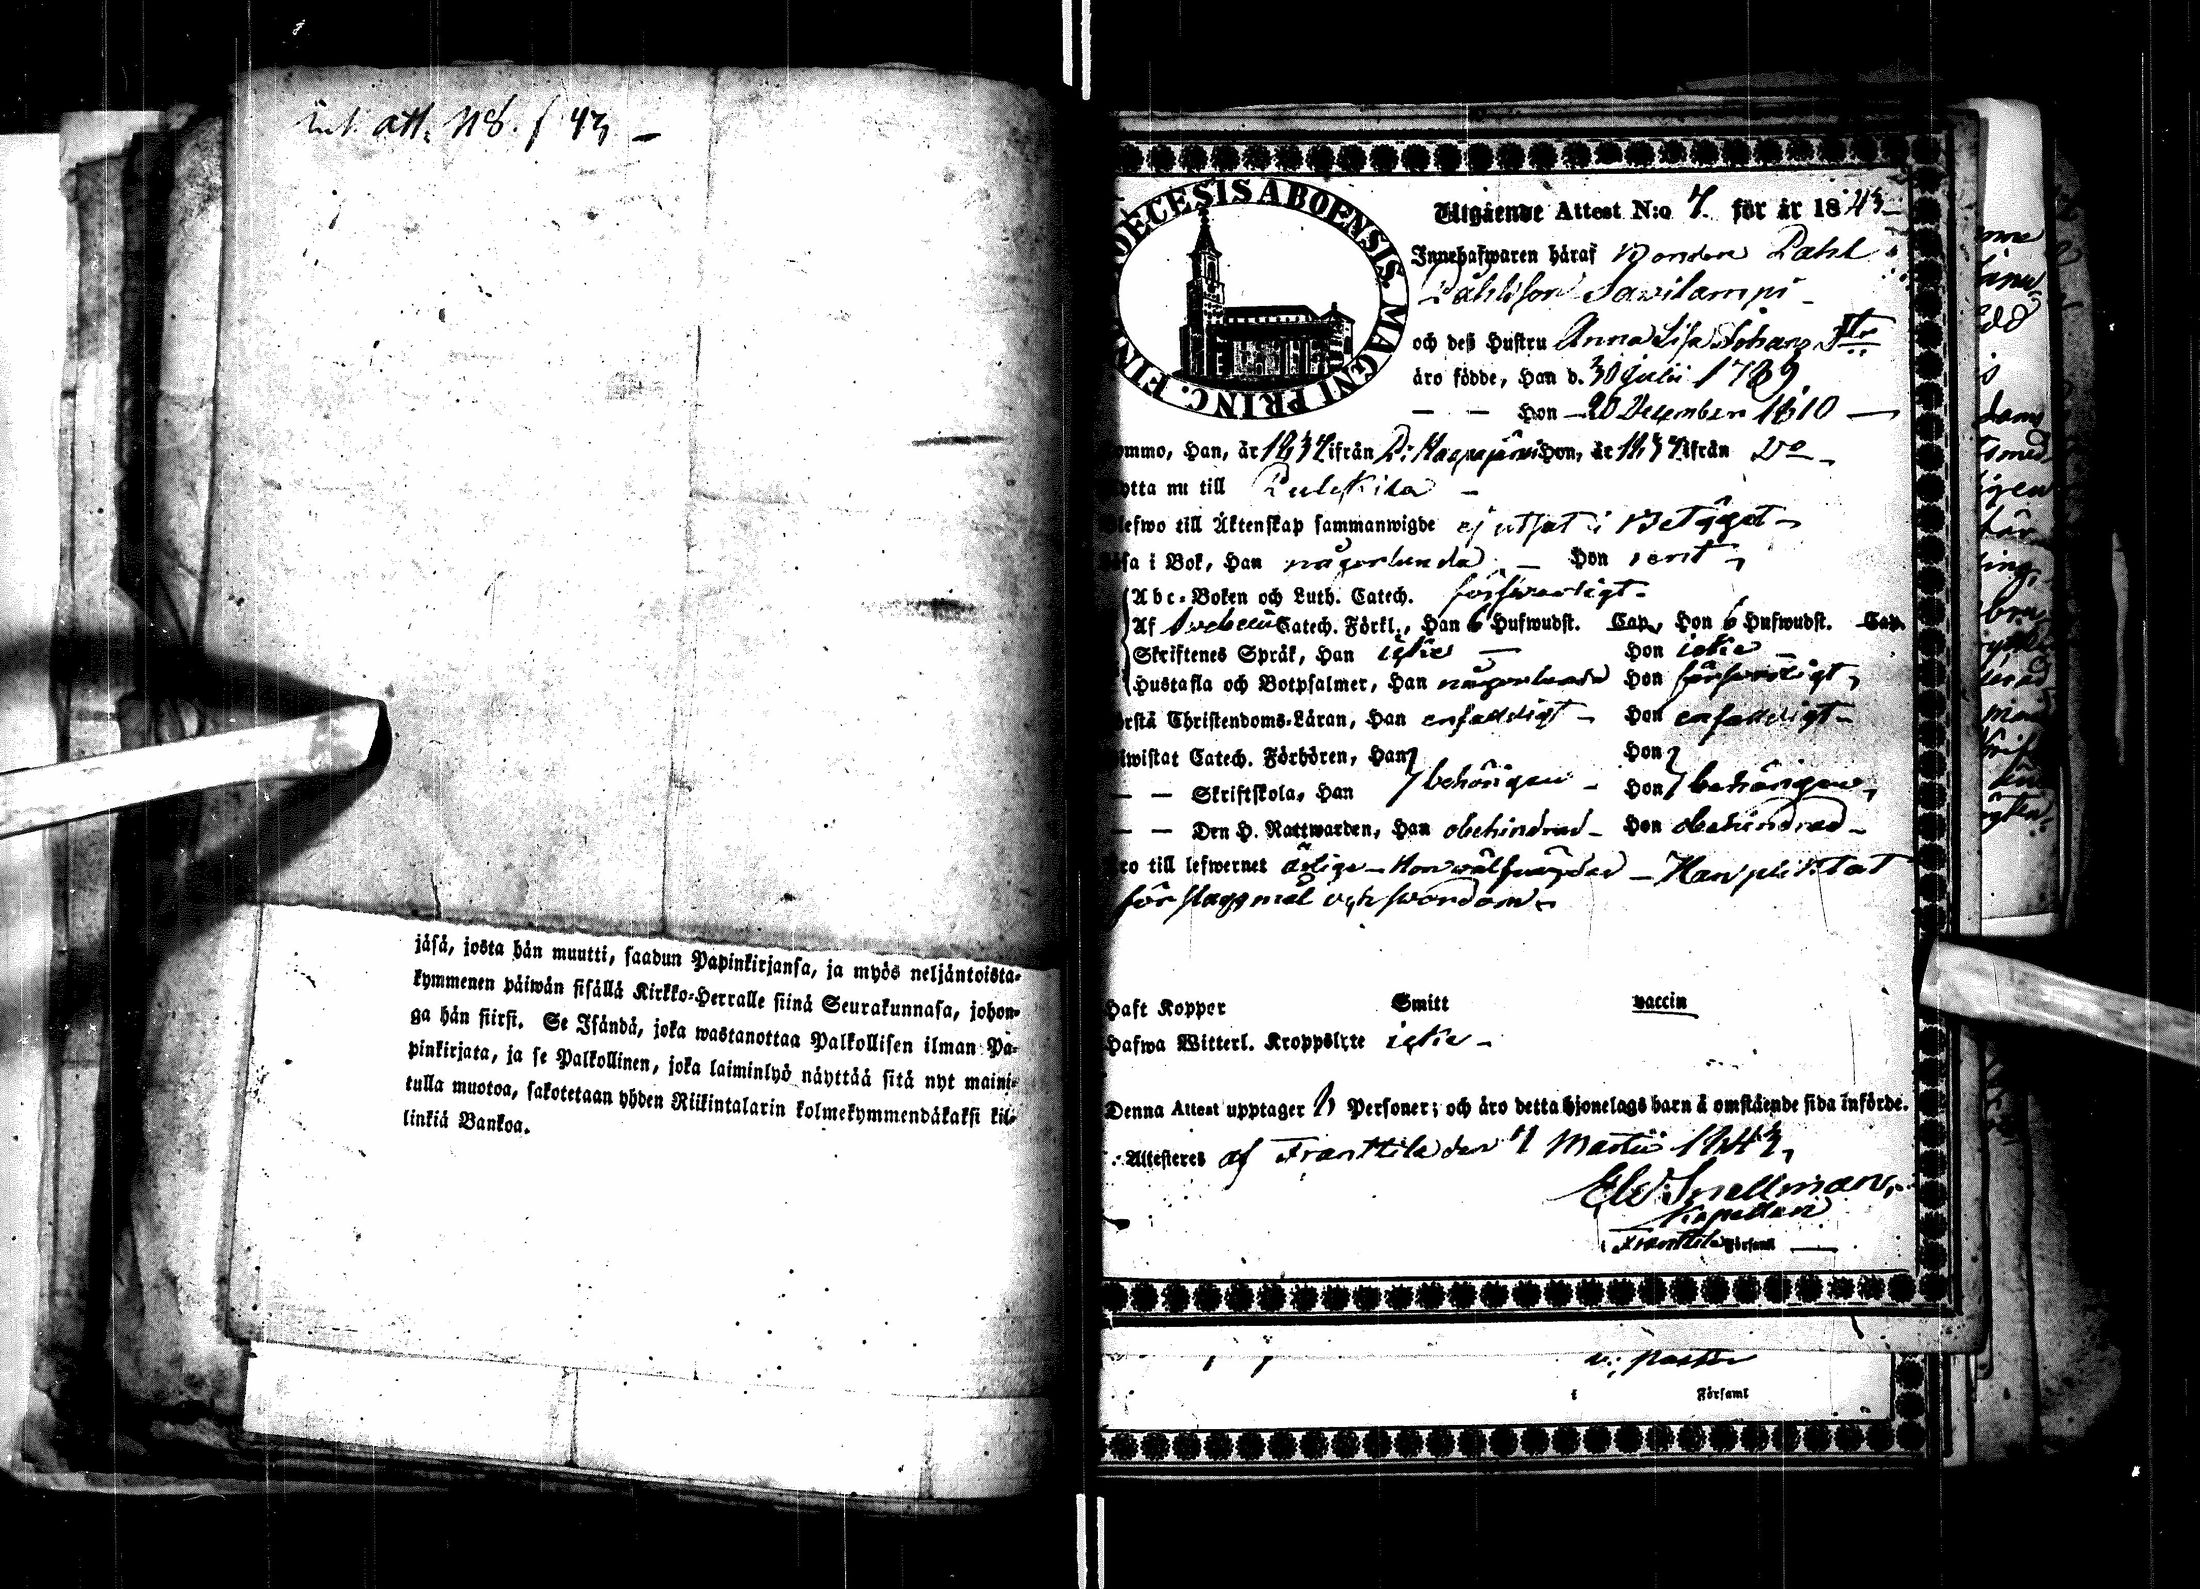 att. N8. f 43 –
jäsä, josta hän muutti, saadun Papinkirjansa, ja myös neljäntoista-
kymmenen päiwän sisällä Kirkko-Herralle siinä Seurakunnasa, johon-
ga hän siirsi. Se Isändä, joka wastanottaa Palkollisen ilman Pa-
pinkirjata, ja se Palkollinen, joka laiminlyö näyttää sitä nyt maini-
tulla muotoa, sakotetaan yhden Riikintalarin kolmekymmendäkaksi kil-
linkiä Bankoa.
DIOECESIS ABOENSIS. MAGNI PRINC. FINL.
Utgående Attest N:o 7. för år 1843
Innehafwaren häraf Bonden Pahl
Påhlsson Savilampi
och deß Hustru Anna Lisa Johans Dtr
äro födde, Han d. 30 Julii 1789
— — Hon 20 December 1810 —
kommo, Han, år 1837 ifrån Haapajärvi Hon, år 1837 ifrån Do
flytta nu till Pulkkila
Blefwo till Äktenskap sammanwigde ej utsat i Betyget
Läsa i Bok, Han någorlunda – Hon rent
Abc-Boken och Luth. Catech. försvarligt
Af Svebelii Catech. Förkl., Han 6 Hufwudst. Cap., Hon 6 Hufwudst. Cap.
Skriftenes Språk, Han icke — Hon icke
Hustafla och Botpsalmer, Han någorlunda Hon försvarligt
Förstå Christendoms-Läran, Han enfaldigt – Hon enfaldigt
Biwistat Catech. Förhören, Han Hon
— — Skriftskola, Han behörigen – Hon behörigen
— — Den H. Nattwarden, Han obehindrad – Hon obehindrad
Äro till lefwernet ärlige – Hon wälfrägdad – Han pliktat
för slagsmål och swordom
Haft Koppor Smitt vaccin
Hafwa Witterl. Kroppslyte icke
Denna Attest upptager 2 Personer; och äro detta hjonelags barn å omstående sida införde.
Attesteres af Frantsila den 7 Martii 1843,
El. Snellman,
Kapellan
i Frantsila Församl
v: pastor
i Församl